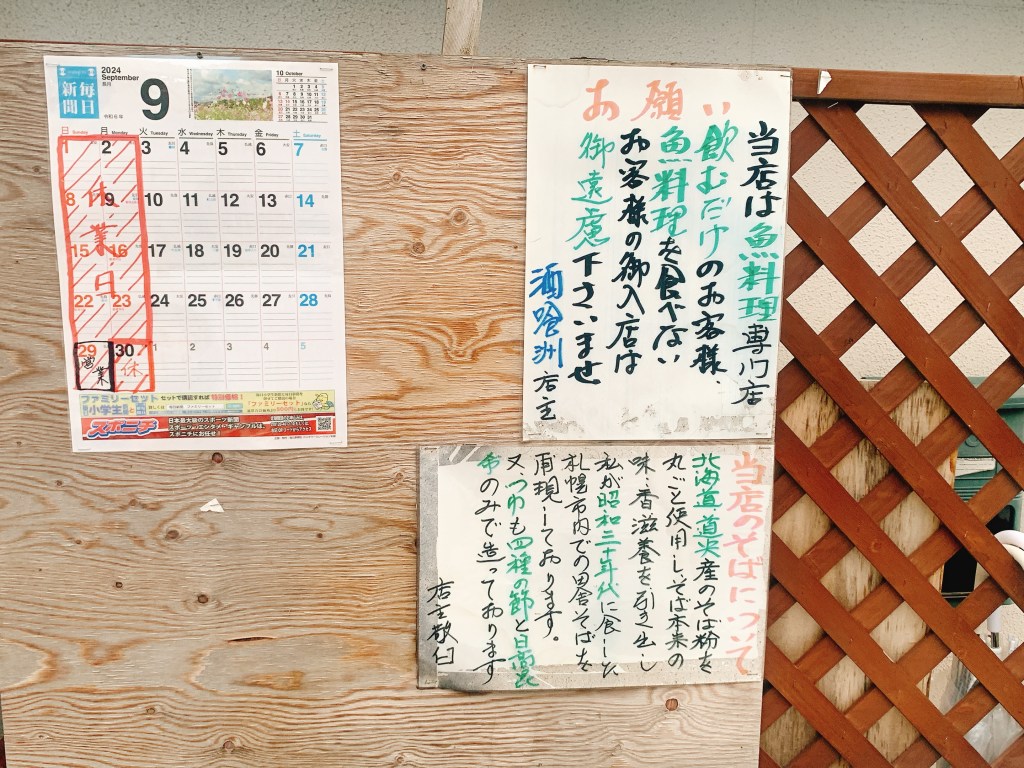 毎日
新聞
2024
September
9
令和6年
10 October
日 Sunday 月 Monday 火 Tuesday 水 Wednesday 木 Thursday 金 Friday 土 Saturday
1 2 3 4 5 6 7
8 9 10 11 12 13 14
15 16 17 18 19 20 21
22 23 24 25 26 27 28
29 30 1 2 3 4 5
休業日
営業
休
ファミリーセット セットで購読すれば
小学生
「ファミリーセット」
スポニチ
日本最大級のスポーツ新聞
スポーツのエンタメ・ギャンブルは、
スポニチにお任せ!
お願い
当店は魚料理専门店
飲むだけのお客様・
魚料理を食べない
お客様の御入店は
御遠慮下さいませ
酒喰洲店主
当店のそばについて
北海道・道央産のそば粉を
丸ごと使用し、そば本来の
味・香滋養を引き出し
私が昭和三十年代に食した
札幌市内での田舎そばを
再現しております。
又、つゆも四種の節と日高昆
布のみで造っております
店主敬白